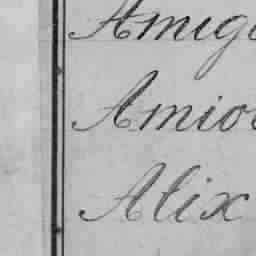 Amig
Amio
Alix